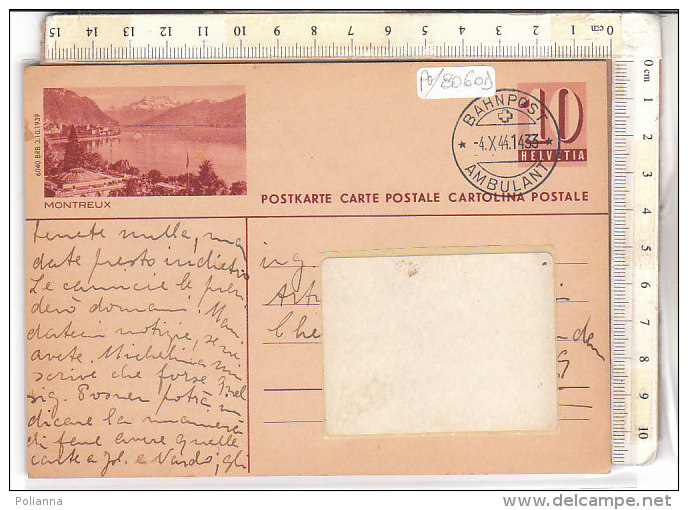 15 14 13 12 11 10 9 8 7 6 5 4 3 2 1 0 cm
0 cm 1 2 3 4 5 6 7 8 9 10
PO/8060S
6040 BRB 3.10.1939
MONTREUX
BAHNPOST
-4.X.44.1433
AMBULANT
10
HELVETIA
POSTKARTE CARTE POSTALE CARTOLINA POSTALE
tenete nulla, ma
date presto indietro
Le camicie le pren
derò domani! Man
datemi notizie, se ne
avete. Michelina mi
scrive che forse quel
sig. Posner potrà in
dicare la maniera
di fare avere quelle
carte a Jol. e Nardo; gli
ing.
Polianna
http://www.delcampe.net